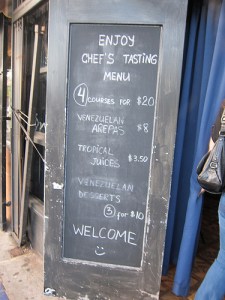 ENJOY
CHEF'S TASTING
MENU
4 COURSES FOR $20
VENEZUELAN
AREPAS $8
TROPICAL
JUICES $3.50
VENEZUELAN
DESSERTS
3 for $10
WELCOME